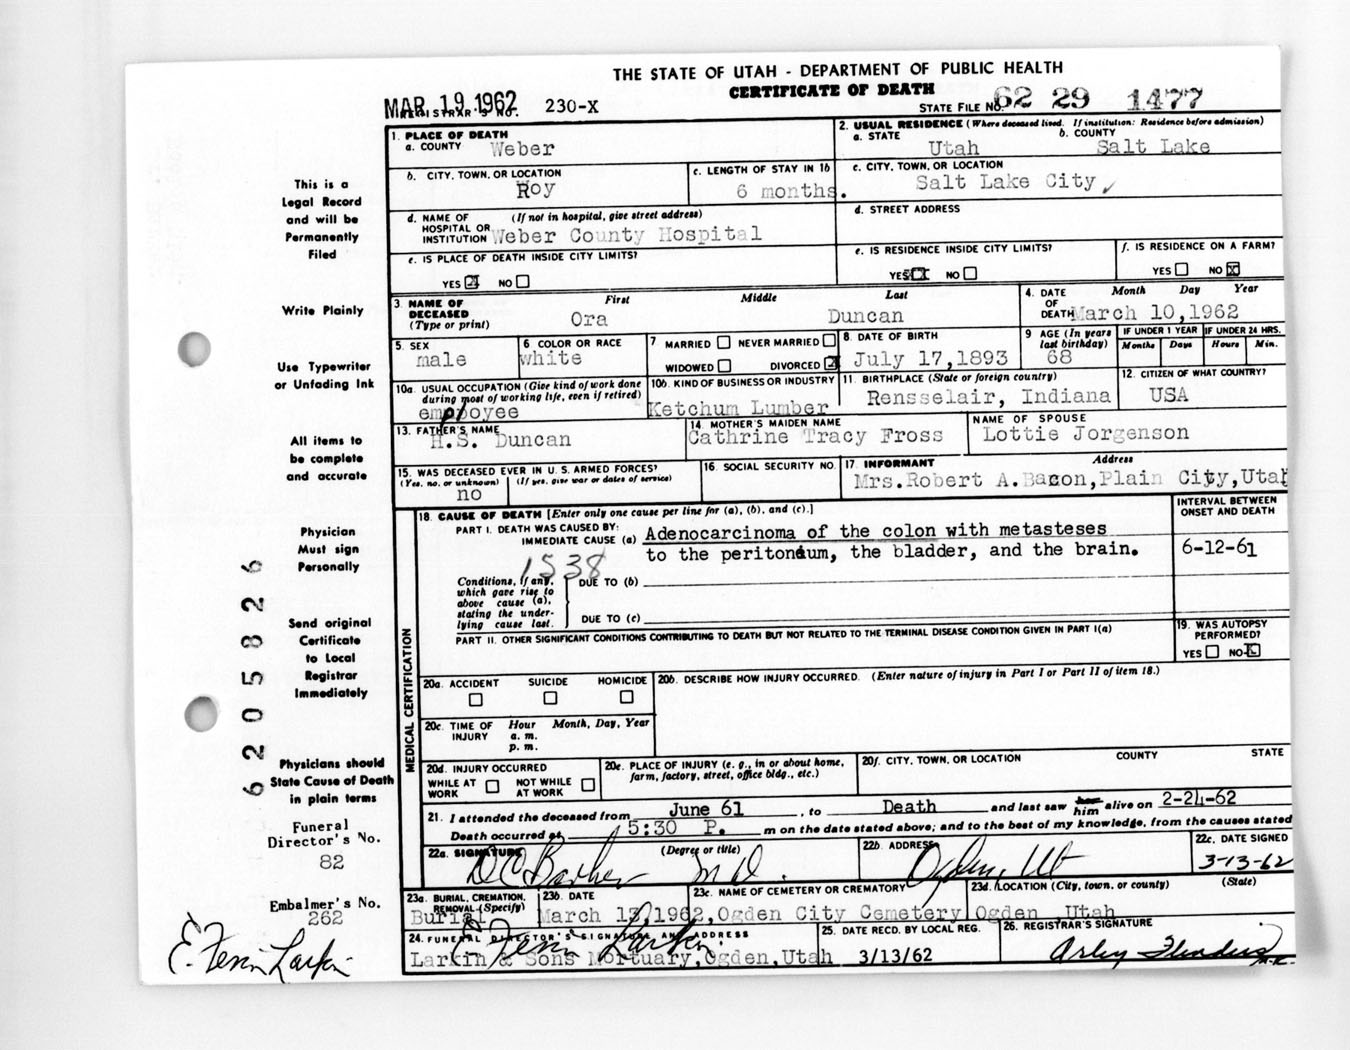 THE STATE OF UTAH - DEPARTMENT OF PUBLIC HEALTH
CERTIFICATE OF DEATH
MAR 19 1962 230-X STATE FILE NO. 62 29 1477
REGISTRAR'S NO.
1. PLACE OF DEATH
a. COUNTY Weber
2. USUAL RESIDENCE (Where deceased lived. If institution: Residence before admission)
a. STATE Utah b. COUNTY Salt Lake
b. CITY, TOWN, OR LOCATION Roy
c. LENGTH OF STAY IN 1b 6 months.
c. CITY, TOWN, OR LOCATION Salt Lake City,
d. NAME OF HOSPITAL OR INSTITUTION (If not in hospital, give street address) Weber County Hospital
d. STREET ADDRESS
e. IS PLACE OF DEATH INSIDE CITY LIMITS?
YES X NO
e. IS RESIDENCE INSIDE CITY LIMITS?
YES X NO
f. IS RESIDENCE ON A FARM?
YES NO X
3. NAME OF DECEASED (Type or print) First Middle Last
Ora Duncan
4. DATE OF DEATH Month Day Year
March 10,1962
5. SEX male
6 COLOR OR RACE white
7 MARRIED NEVER MARRIED
WIDOWED DIVORCED X
8 DATE OF BIRTH July 17,1893
9 AGE (In years last birthday) 68
IF UNDER 1 YEAR Months Days
IF UNDER 24 HRS. Hours Min.
10a. USUAL OCCUPATION (Give kind of work done during most of working life, even if retired)
employee
10b. KIND OF BUSINESS OR INDUSTRY Ketchum Lumber
11. BIRTHPLACE (State or foreign country) Rensselair, Indiana
12. CITIZEN OF WHAT COUNTRY? USA
13. FATHER'S NAME H.S. Duncan
14. MOTHER'S MAIDEN NAME Cathrine Tracy Fross
NAME OF SPOUSE Lottie Jorgenson
15. WAS DECEASED EVER IN U. S. ARMED FORCES?
(Yes, no, or unknown) (If yes, give war or dates of service)
no
16. SOCIAL SECURITY NO.
17. INFORMANT Address
Mrs.Robert A.Bacon,Plain City,Utah
18. CAUSE OF DEATH [Enter only one cause per line for (a), (b), and (c).]
INTERVAL BETWEEN ONSET AND DEATH
PART I. DEATH WAS CAUSED BY:
IMMEDIATE CAUSE (a) Adenocarcinoma of the colon with metasteses
to the peritoneum, the bladder, and the brain. 6-12-61
1538
Conditions, if any, which gave rise to above cause (a), stating the underlying cause last.
DUE TO (b)
DUE TO (c)
PART II. OTHER SIGNIFICANT CONDITIONS CONTRIBUTING TO DEATH BUT NOT RELATED TO THE TERMINAL DISEASE CONDITION GIVEN IN PART I(a)
19. WAS AUTOPSY PERFORMED?
YES NO X
MEDICAL CERTIFICATION
20a. ACCIDENT SUICIDE HOMICIDE
20b. DESCRIBE HOW INJURY OCCURRED. (Enter nature of injury in Part I or Part II of item 18.)
20c. TIME OF INJURY Hour Month, Day, Year
a. m.
p. m.
20d. INJURY OCCURRED
WHILE AT WORK NOT WHILE AT WORK
20e. PLACE OF INJURY (e. g., in or about home, farm, factory, street, office bldg., etc.)
20f. CITY, TOWN, OR LOCATION COUNTY STATE
21. I attended the deceased from June 61, to Death and last saw him alive on 2-24-62
Death occurred at 5:30 P. m on the date stated above; and to the best of my knowledge, from the causes stated
22a. SIGNATURE (Degree or title) D C Barker M D.
22b. ADDRESS Ogden, Ut
22c. DATE SIGNED 3-13-62
23a. BURIAL, CREMATION, REMOVAL (Specify) Burial
23b. DATE March 13,1962,
23c. NAME OF CEMETERY OR CREMATORY Ogden City Cemetery
23d. LOCATION (City, town, or county) (State)
Ogden ,Utah
24. FUNERAL DIRECTOR'S SIGNATURE AND ADDRESS
Larkin & Sons Mortuary,Ogden,Utah
25. DATE RECD. BY LOCAL REG. 3/13/62
26. REGISTRAR'S SIGNATURE
This is a
Legal Record
and will be
Permanently
Filed
Write Plainly
Use Typewriter
or Unfading Ink
All items to
be complete
and accurate
Physician
Must sign
Personally
Send original
Certificate
to Local
Registrar
Immediately
Physicians should
State Cause of Death
in plain terms
6205826
Funeral
Director's No.
82
Embalmer's No.
262
E. Fenn Larkin